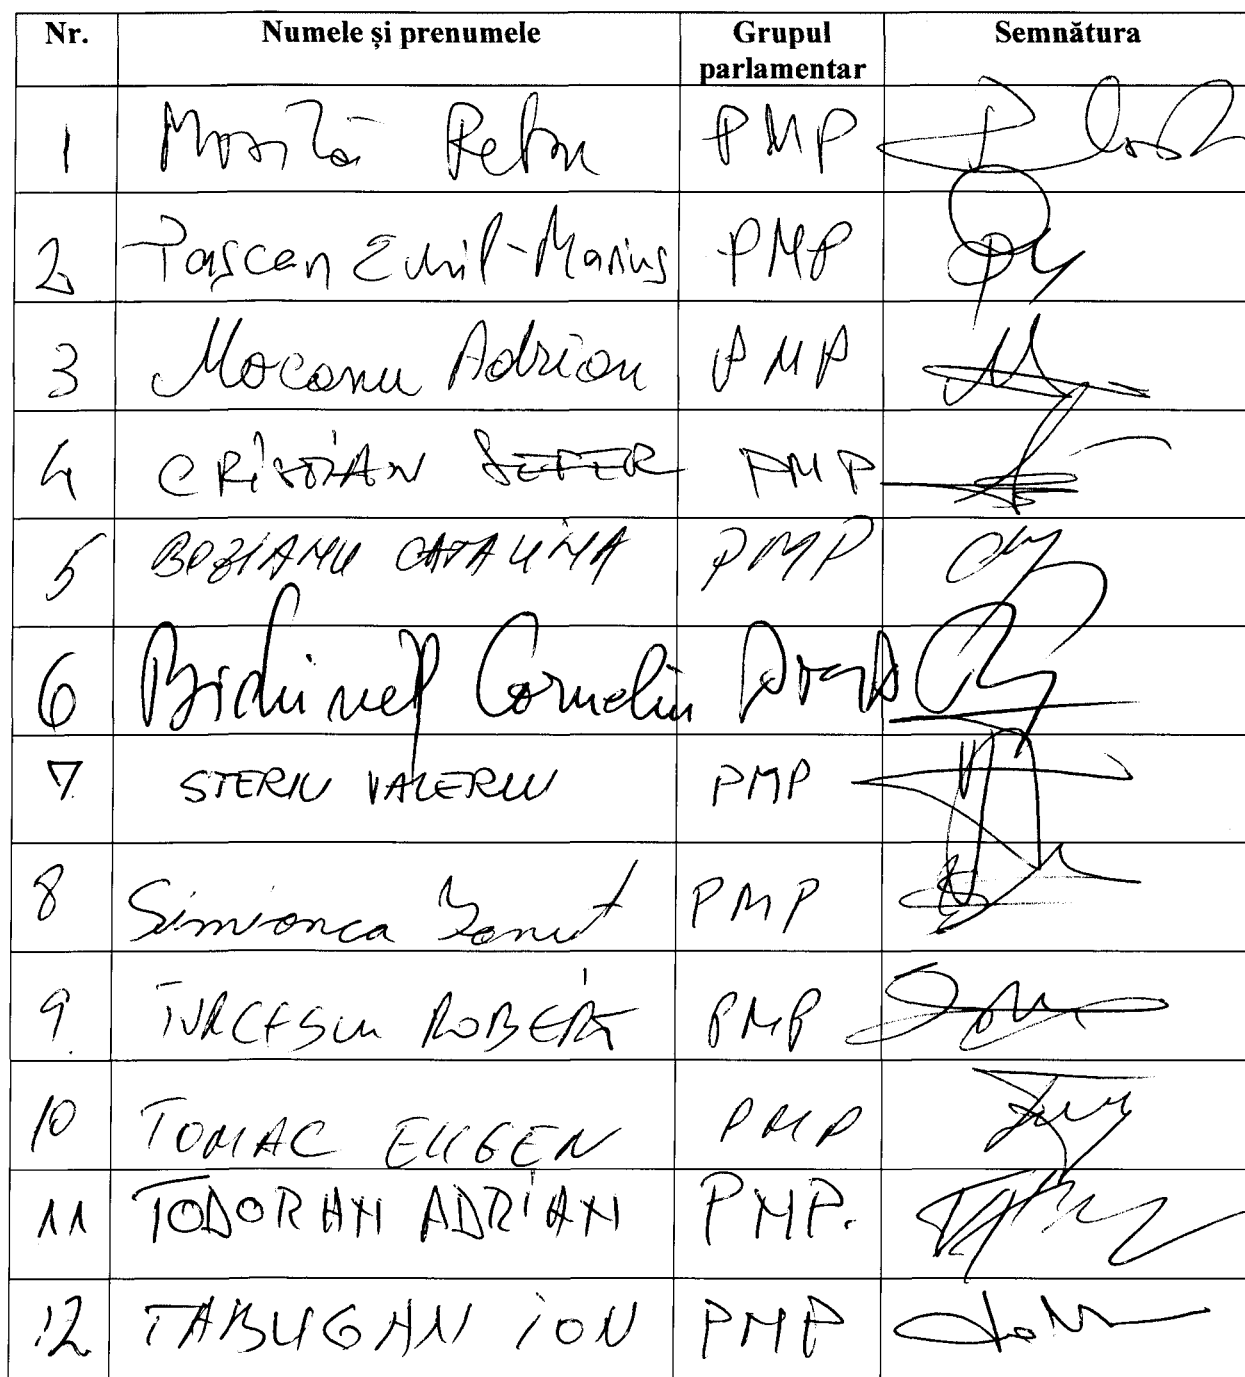 Nr. Numele și prenumele Grupul parlamentar Semnătura
1 Movilă Petru PMP
2 Pașcan Emil-Marius PMP
3 Mocanu Adrian PMP
4 CRISTIAN SEFER PMP
5 BOZIANU CATALINA PMP
6 Bichinet Corneliu PMP
7 STERIU VALERIU PMP
8 Simionca Ionut PMP
9 TURCESCU ROBERT PMP
10 TOMAC EUGEN PMP
11 TODORAN ADRIAN PMP.
12 TABUGAN ION PMP